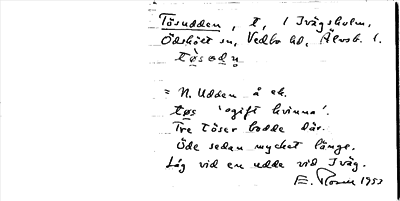 Tösudden, t, i Ivägsholm,
Ödskölt sn, Vedbo hd, Älvsb. l.
tøsødn
= N. Udden å ek.
tøs 'ogift kvinna'.
Tre töser bodde där.
Öde sedan mycket länge.
Låg vid en udde vid Iväg.
E. Rosell 1953